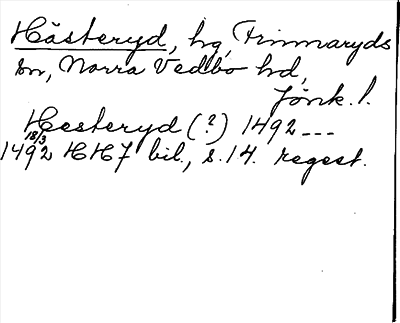 Hästeryd, hg, Frinnaryds
sn, Norra Vedbo hd,
Jönk. l.
Hesteryd (?) 1492 ---
18/3
1492 HH7 bil., s. 14. regest.